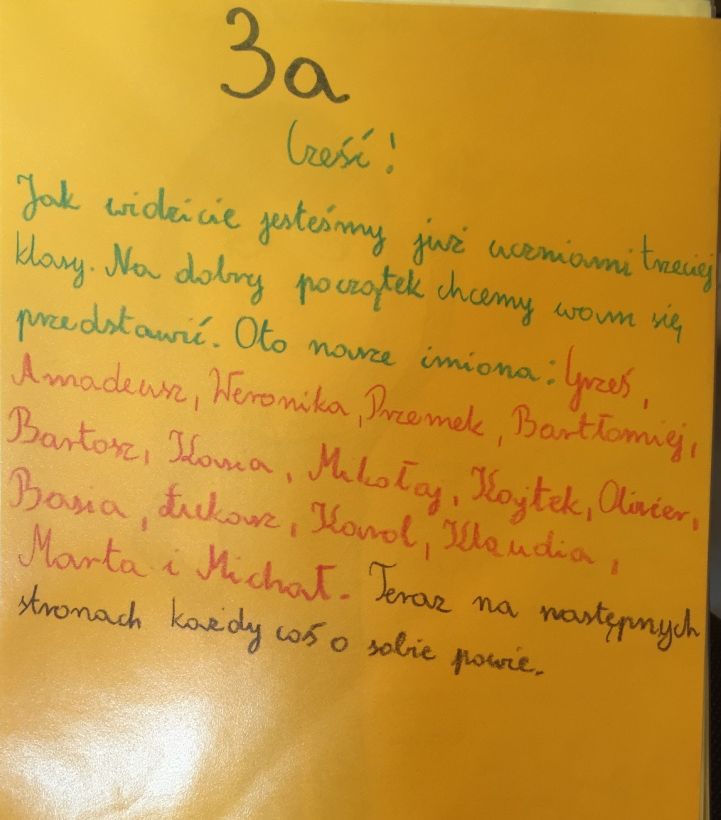 3a
Cześć!
Jak widzicie jesteśmy już uczniami trzeciej
klasy. Na dobry początek chcemy wam się
przedstawić. Oto nasze imiona: Grześ,
Amadeusz, Weronika, Przemek, Bartłomiej,
Bartosz, Kasia, Mikołaj, Kajtek, Olivier,
Basia, Łukasz, Karol, Klaudia,
Marta i Michał. Teraz na następnych
stronach każdy coś o sobie powie.